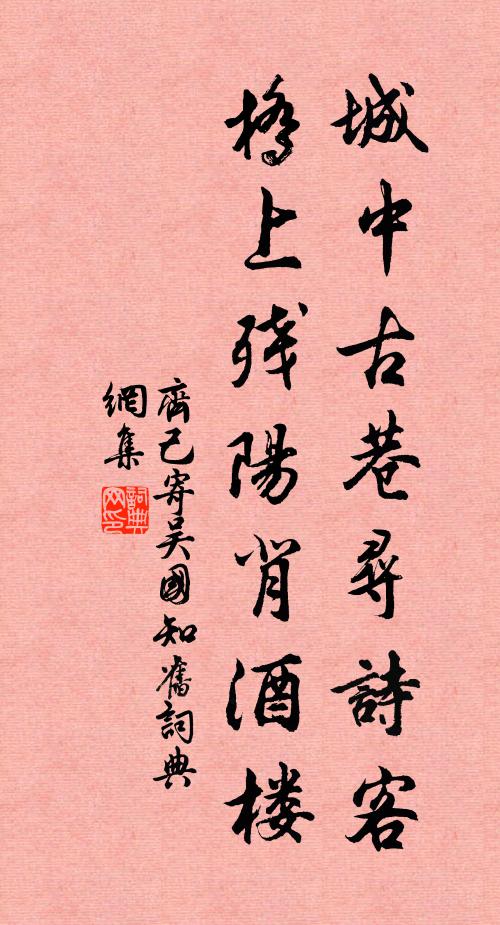 城中古巷尋詩客
橋上残陽背酒楼
齊己寄吴國知舊詞典
網集
詞典
网印